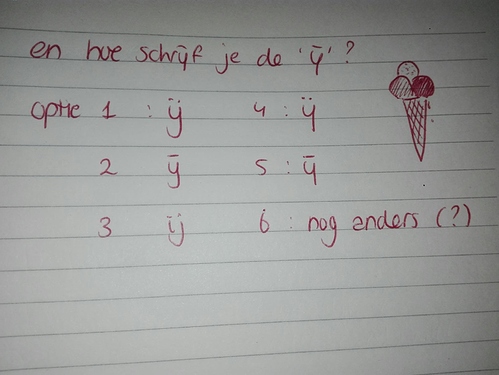 en hoe schrijf je de 'ȳ'?
optie 1 : ÿ 4 : ÿ
2 ȳ 5 : ȳ
3 ij 6 : nog anders (?)